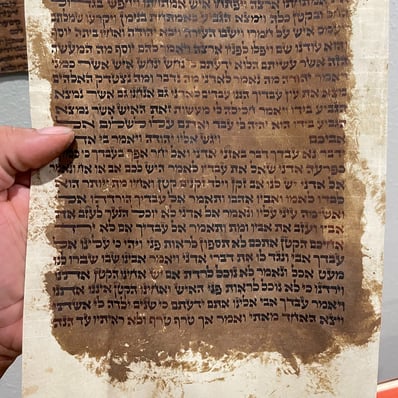 אמתחתו ויחפש
ובקטן כלה וימצא הגביע באמתחת בנימן ויקרעו שמלתם
איש על חמרו וישבו העירה ויבא יהודה ואחיו ביתה יוסף
והוא עודנו שם ויפלו לפניו ארצה ויאמר להם יוסף מה המעשה
הזה אשר עשיתם הלוא ידעתם כי נחש ינחש איש אשר כמני
ויאמר יהודה מה נאמר לאדני מה נדבר ומה נצטדק האלהים
מצא את עון עבדיך הננו עבדים לאדני גם אנחנו גם אשר נמצא
הגביע בידו ויאמר חלילה לי מעשות זאת האיש אשר נמצא
הגביע בידו הוא יהיה לי עבד ואתם עלו לשלום אל
אביכם ויגש אליו יהודה ויאמר בי אדני
ידבר נא עבדך דבר באזני אדני ואל יחר אפך בעבדך כי כמוך
כפרעה אדני שאל את עבדיו לאמר היש לכם אב או אח ונאמר
אל אדני יש לנו אב זקן וילד זקנים קטן ואחיו מת ויותר הוא
לבדו לאמו ואביו אהבו ותאמר אל עבדיך הורדהו אלי
ואשימה עיני עליו ונאמר אל אדני לא יוכל הנער לעזב את
אביו ועזב את אביו ומת ותאמר אל עבדיך אם לא ירד
אחיכם הקטן אתכם לא תספון לראות פני ויהי כי עלינו אל
עבדך אבי ונגד לו את דברי אדני ויאמר אבינו שבו שברו לנו
מעט אכל ונאמר לא נוכל לרדת אם יש אחינו הקטן אתנו
וירדנו כי לא נוכל לראות פני האיש ואחינו הקטן איננו אתנו
ויאמר עבדך אבי אלינו אתם ידעתם כי שנים ילדה לי אשתי
ויצא האחד מאתי ואמר אך טרף טרף ולא ראיתיו עד הנה